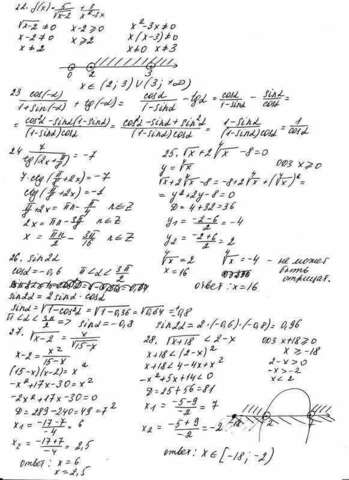 22. f(x) = 5/√(x-2) + 6/(x²-3x)
√(x-2) ≠ 0   x-2 ≥ 0   x²-3x ≠ 0
x-2 ≠ 0   x ≥ 2   x(x-3) ≠ 0
x ≠ 2   x ≠ 0   x ≠ 3
0   2   3
x ∈ (2; 3) ∪ (3; +∞)
23 cos(-α)/(1+sin(-α)) + tg(-α) = cosα/(1-sinα) - tgα = cosα/(1-sinα) - sinα/cosα =
= (cos²α - sinα(1-sinα))/((1-sinα)cosα) = (cos²α - sinα + sin²α)/((1-sinα)cosα) = (1-sinα)/((1-sinα)cosα) = 1/cosα
25. √x + 2∜x - 8 = 0
y = ∜x   ОДЗ x ≥ 0
√x + 2∜x - 8 = -8 + 2∜x + (∜x)² =
= y² + 2y - 8 = 0
D = 4 + 32 = 36
y₁ = (-2-6)/2 = -4
y₂ = (-2+6)/2 = 2
∜x = 2   ∜x = -4 - не может
x = 16   быть
отрицат.
ответ: x = 16
26. sin2α
cosα = -0,6   π < α < 3π/2
sin2α = 2sinα · cosα
sinα = √(1-cos²α) = √(1-0,36) = √0,64 = 0,8
π < α < 3π/2 => sinα = -0,8   sin2α = 2·(-0,6)·(-0,8) = 0,96
27. √(x-2) = x/√(15-x)
x-2 = x²/(15-x)
(15-x)(x-2) = x²
-x² + 17x - 30 = x²
-2x² + 17x - 30 = 0
D = 289 - 240 = 49 = 7²
x₁ = (-17-7)/-4 = 6
x₂ = (-17+7)/-4 = 2,5
ответ: x = 6
x = 2,5
28. √(x+18) < 2-x   ОДЗ x+18 ≥ 0
x ≥ -18
x+18 < (2-x)²   2-x > 0
x+18 < 4-4x+x²   -x > -2
-x²+5x+14 < 0   x < 2
D = 25+56 = 81
x₁ = (-5-9)/-2 = 7
x₂ = (-5+9)/-2 = -2
ответ: x ∈ [-18; -2)